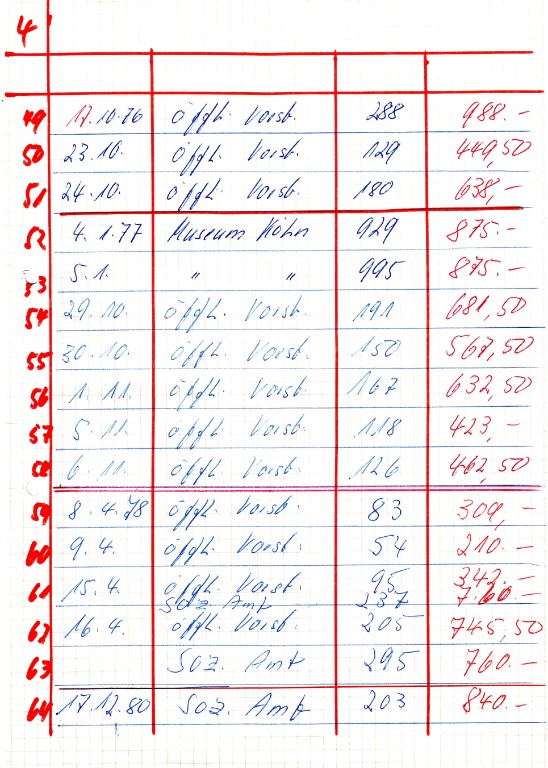 4
49 17.10.76 öffl. Vorst. 288 988.-
50 23.10. öffl. Vorst. 129 449,50
51 24.10. öffl. Vorst. 180 638,-
52 4.1.77 Museum Köhn 929 875.-
53 5.1. " " 995 875.-
54 29.10. öffl. Vorst. 191 681,50
55 30.10. öffl. Vorst. 150 567,50
56 1.11. öffl. Vorst. 167 632,50
57 5.11. öffl. Vorst. 118 423,-
58 6.11. öffl. Vorst. 126 462,50
59 8.4.78 öffl. Vorst. 83 309,-
60 9.4. öffl. Vorst. 54 210.-
61 15.4. öffl. Vorst. 95 342.-
Soz. Amt 237 760.-
62 16.4. öffl. Vorst. 205 745,50
63 Soz. Amt 295 760.-
64 17.12.80 Soz. Amt 203 840.-